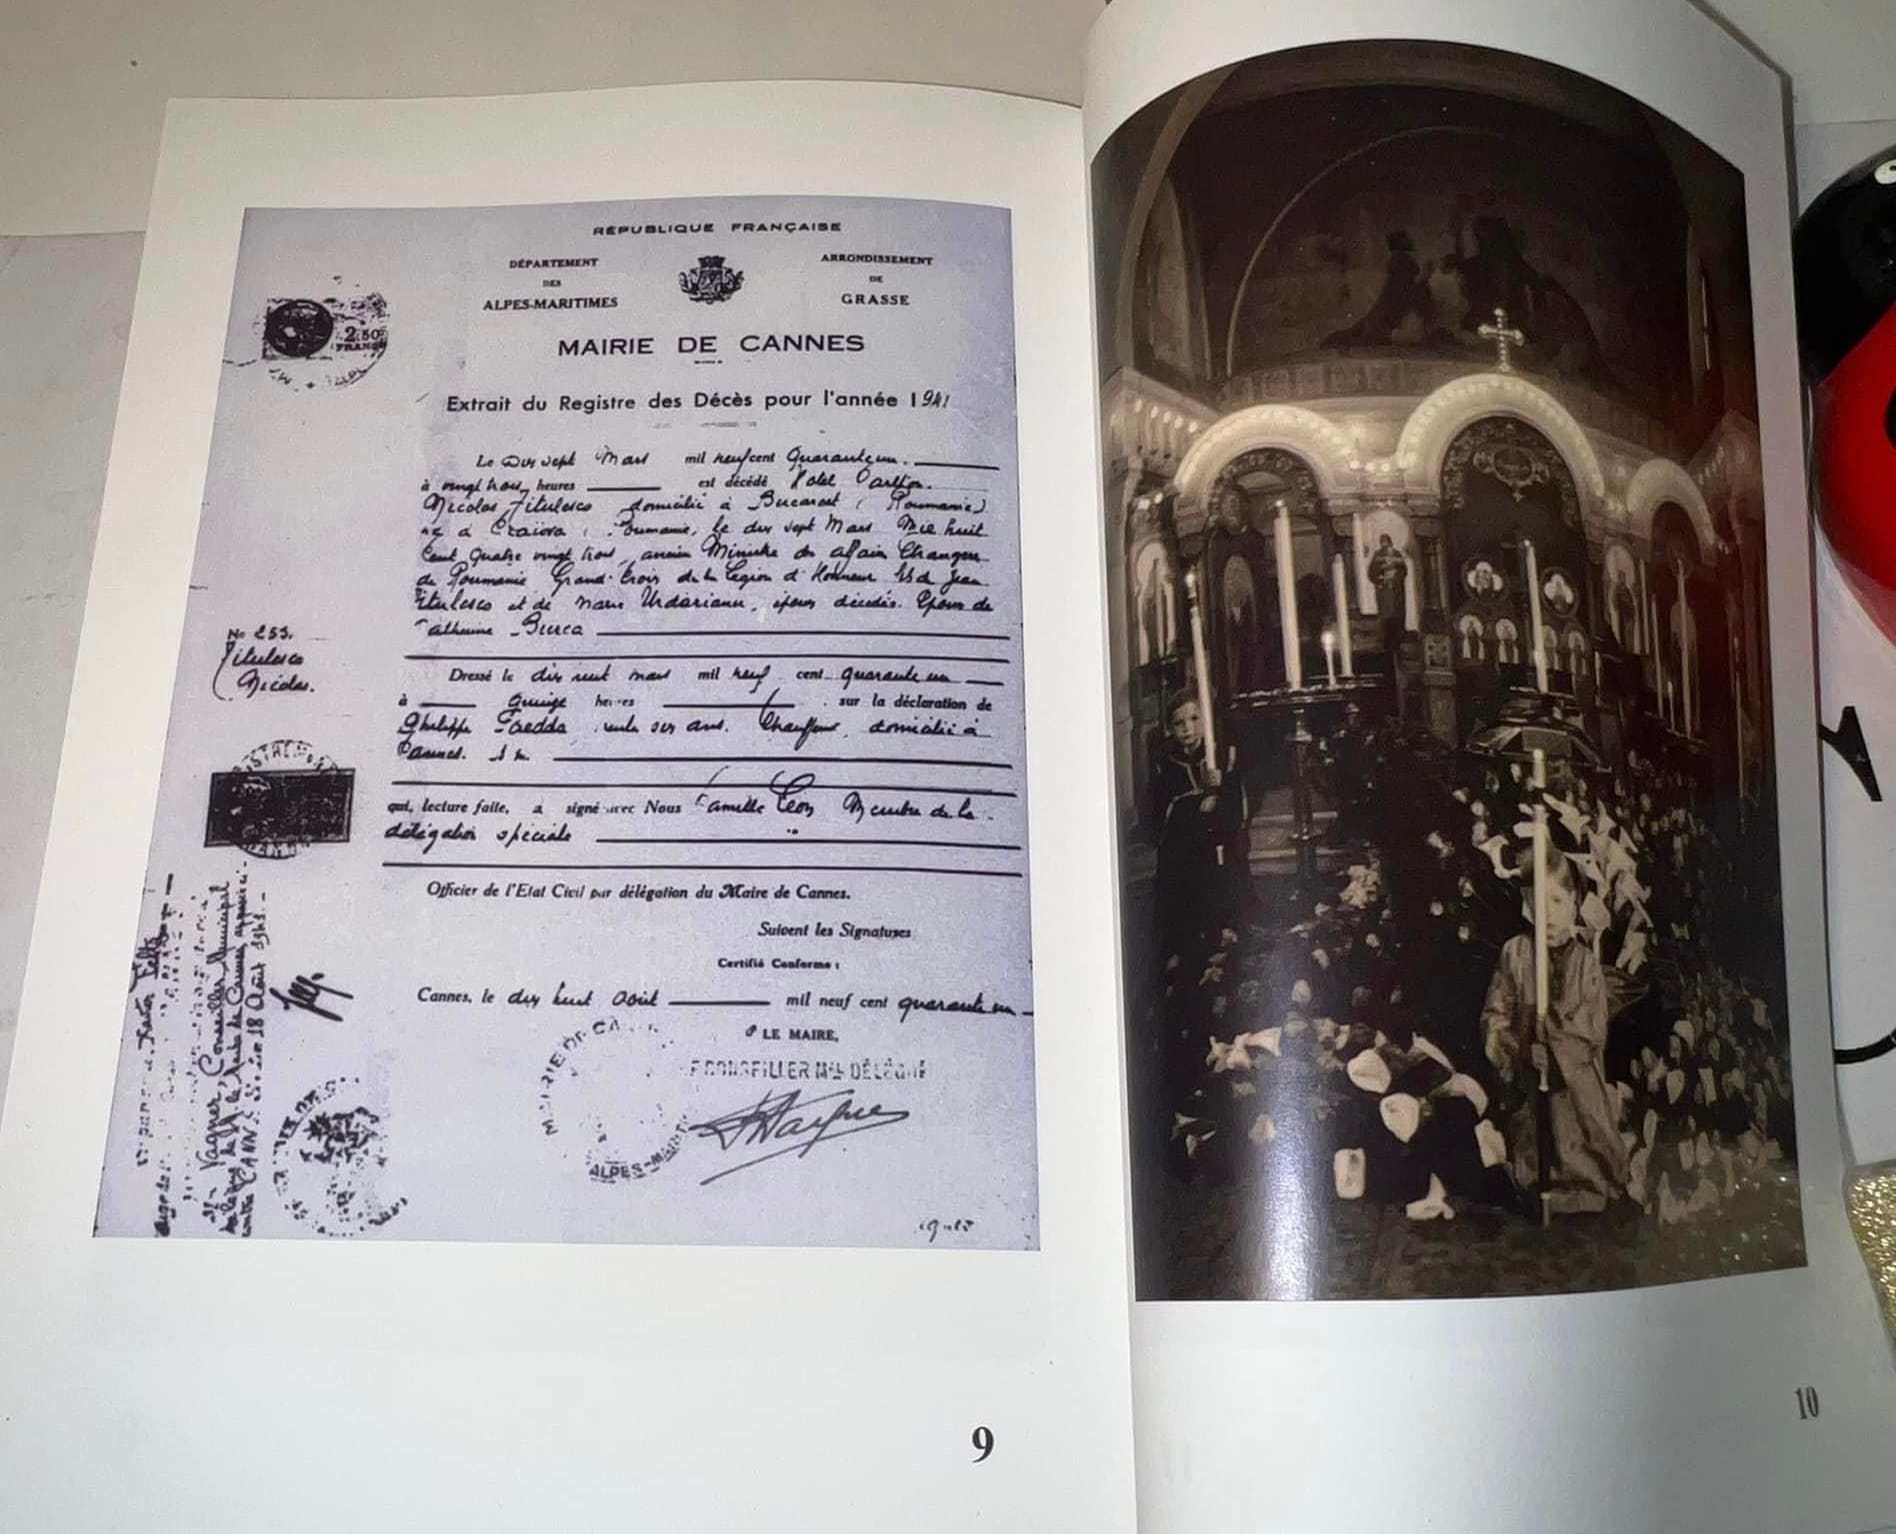 RÉPUBLIQUE FRANÇAISE
DÉPARTEMENT
DES
ALPES-MARITIMES
ARRONDISSEMENT
DE
GRASSE
2.50
FRANCS
MAIRIE DE CANNES
Extrait du Registre des Décès pour l'année 1941
Le Dix sept Mars mil neuf cent Quarante un.
à vingt trois heures est décédé Hotel Carlton.
Nicolas Titulesco domicilié à Bucarest (Roumanie)
né à Craiova, Roumanie, le dix sept Mars Mil huit
Cent Quatre vingt trois, ancien Ministre des affaires Etrangères
de Roumanie Grand-Croix de la Légion d'Honneur fils de Jean
Titulesco et de Marie Urdarianu, époux décédés. Epoux de
Catherine Burca
No 253.
Titulesco
Nicolas.
Dressé le dix neuf mars mil neuf cent quarante un
à quinze heures sur la déclaration de
Philippe Faedda, trente six ans. Chauffeur, domicilié à
Cannes.
qui, lecture faite, a signé avec Nous Camille Léon Membre de la
délégation spéciale
Officier de l'Etat Civil par délégation du Maire de Cannes.
Suivent les Signatures
Certifié Conforme :
Cannes, le dix huit Août mil neuf cent quarante un
LE MAIRE,
CONSEILLER Mal DÉLÉGUÉ
MAIRIE DE CA
ALPES-MARIT
Vagner, Conseiller Municipal
18 Août 1941
9
10